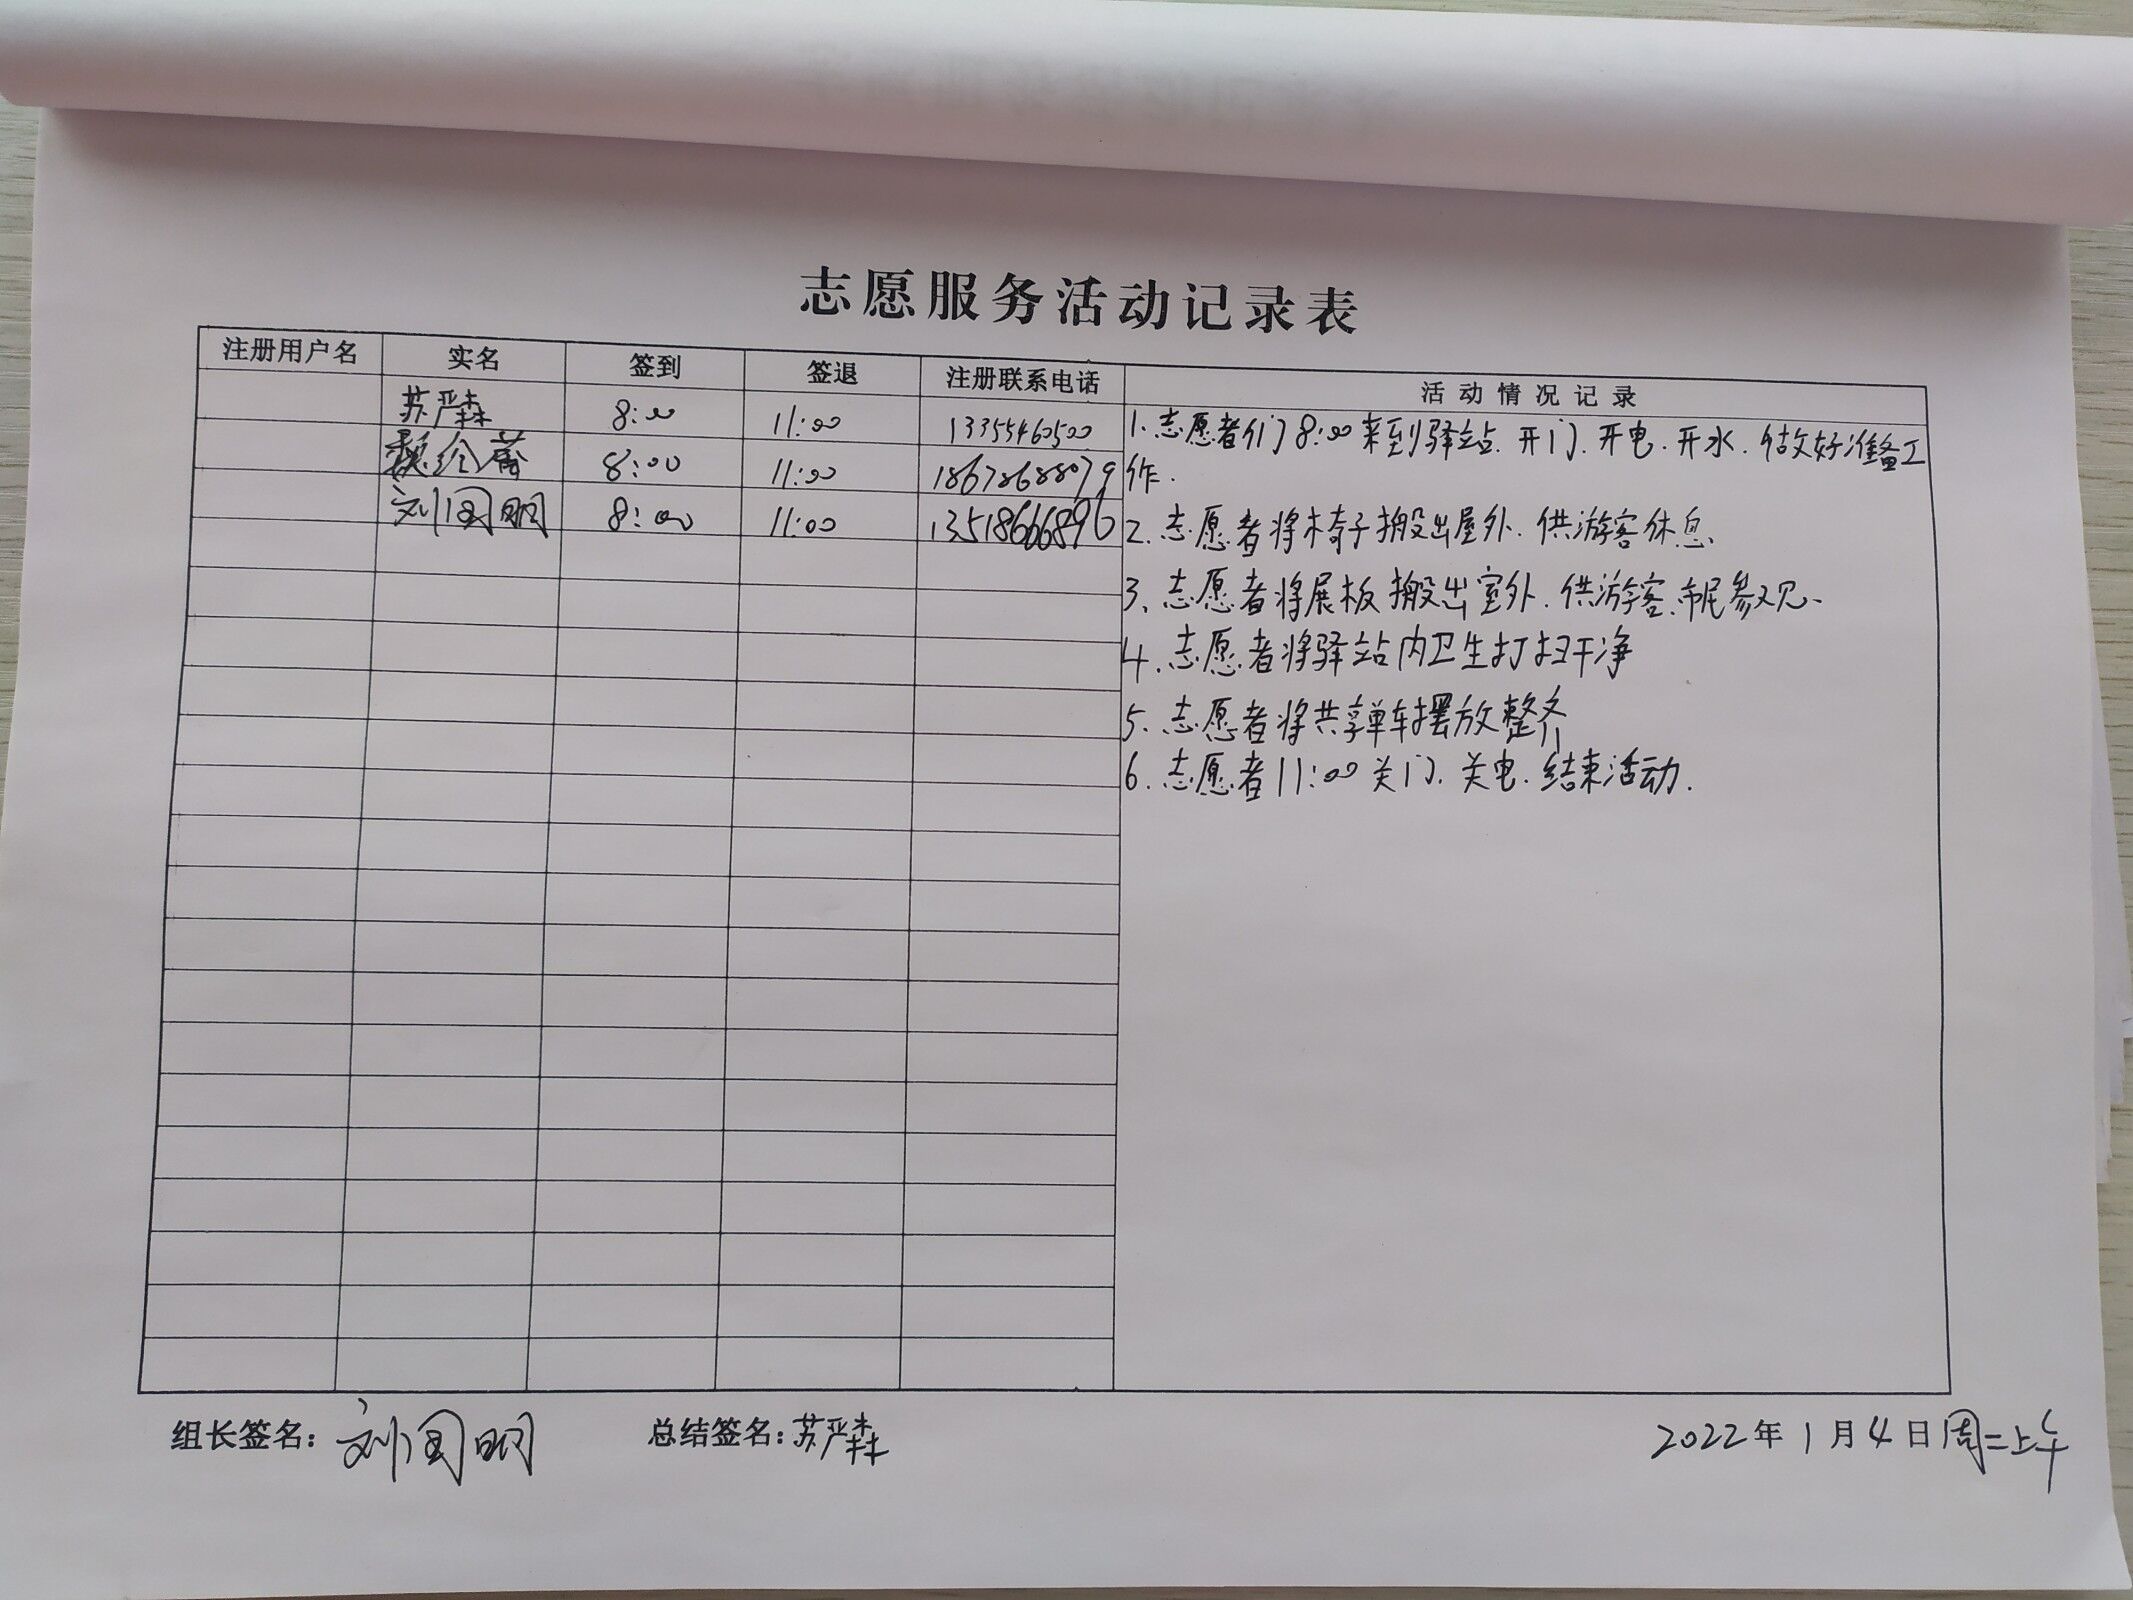 志愿服务活动记录表
注册用户名 实名 签到 签退 注册联系电话 活动情况记录
苏严森 8:00 11:00 13355460500
8:00 11:00 18678688079
刘国明 8:00 11:00 13518666896
1.志愿者们8:00来到驿站.开门.开电.开水.做好准备工
作.
2.志愿者将椅子搬出屋外.供游客休息
3、志愿者将展板搬出室外.供游客.市民参观.
4.志愿者将驿站内卫生打扫干净
5.志愿者将共享单车摆放整齐
6.志愿者11:00关门.关电.结束活动.
组长签名：刘国明 总结签名：苏严森 2022年1月4日周二上午